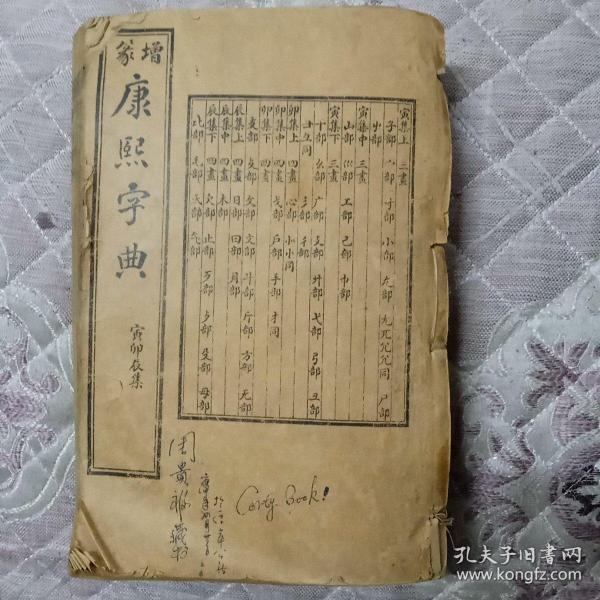 增篆
康熙字典
寅卯辰集
寅集上 三畫
子部 宀部 寸部 小部 尢部 尣兀尢尢同 尸部
屮部
寅集中 三畫
山部 巛部 工部 己部 巾部
寅集下 三畫
干部 幺部 广部 廴部 廾部 弋部 弓部 彐部
彑彐同 彡部 彳部
卯集上 四畫 心部 忄㣺同
卯集中 四畫 戈部 戶部 手部 扌同
卯集下 四畫
支部 攴部 攵部 文部 斗部 斤部 方部 无部
辰集上 四畫 日部 曰部 月部
辰集中 四畫 木部
辰集下 四畫 欠部 止部 歹部 歺部 殳部 毋部
比部 毛部 氏部 气部
周貴
藏书
Book!
孔夫子旧书网
www.kongfz.com